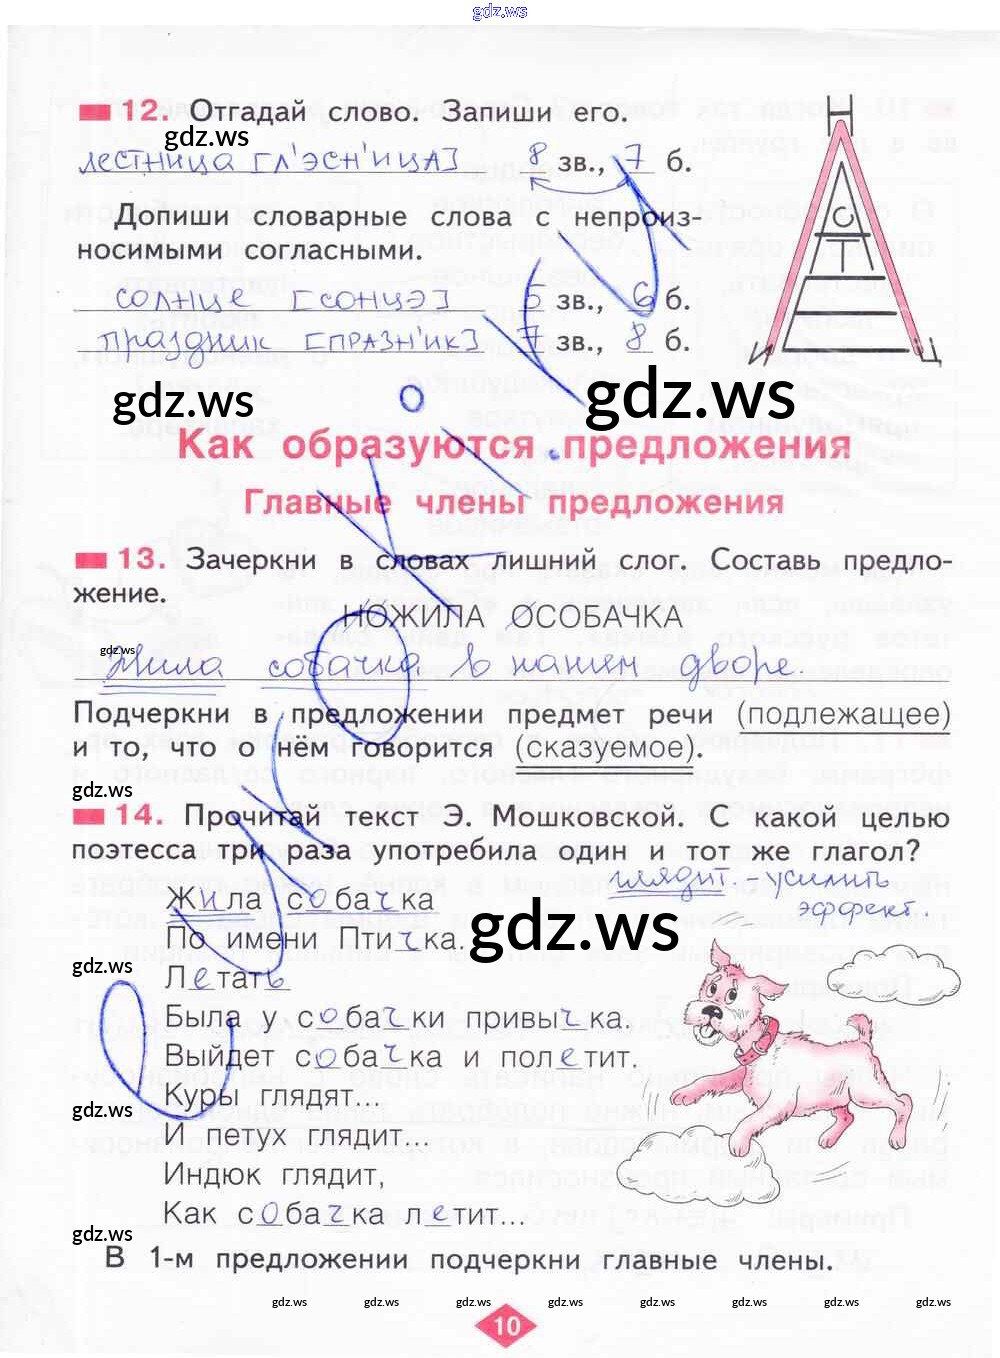 gdz.ws
12. Отгадай слово. Запиши его.
gdz.ws
лестница [Л'ЭСН'ИЦА] 8 зв., 7 б.
Допиши словарные слова с непроиз-
носимыми согласными.
солнце [СОНЦЭ] 5 зв., 6 б.
праздник [ПРАЗН'ИК] 7 зв., 8 б.
С
Т
И Ц
gdz.ws gdz.ws
Как образуются предложения
Главные члены предложения
13. Зачеркни в словах лишний слог. Составь предло-
жение.
НОЖИЛА ОСОБАЧКА
gdz.ws
Жила собачка в нашем дворе.
Подчеркни в предложении предмет речи (подлежащее)
и то, что о нём говорится (сказуемое).
gdz.ws
14. Прочитай текст Э. Мошковской. С какой целью
поэтесса три раза употребила один и тот же глагол?
глядит - усилить
эффект.
Жила собачка
По имени Птичка.
gdz.ws
gdz.ws
Летать
Была у собачки привычка.
Выйдет собачка и полетит.
Куры глядят...
gdz.ws
И петух глядит...
Индюк глядит,
Как собачка летит...
gdz.ws
В 1-м предложении подчеркни главные члены.
gdz.ws gdz.ws gdz.ws gdz.ws gdz.ws gdz.ws gdz.ws gdz.ws
10